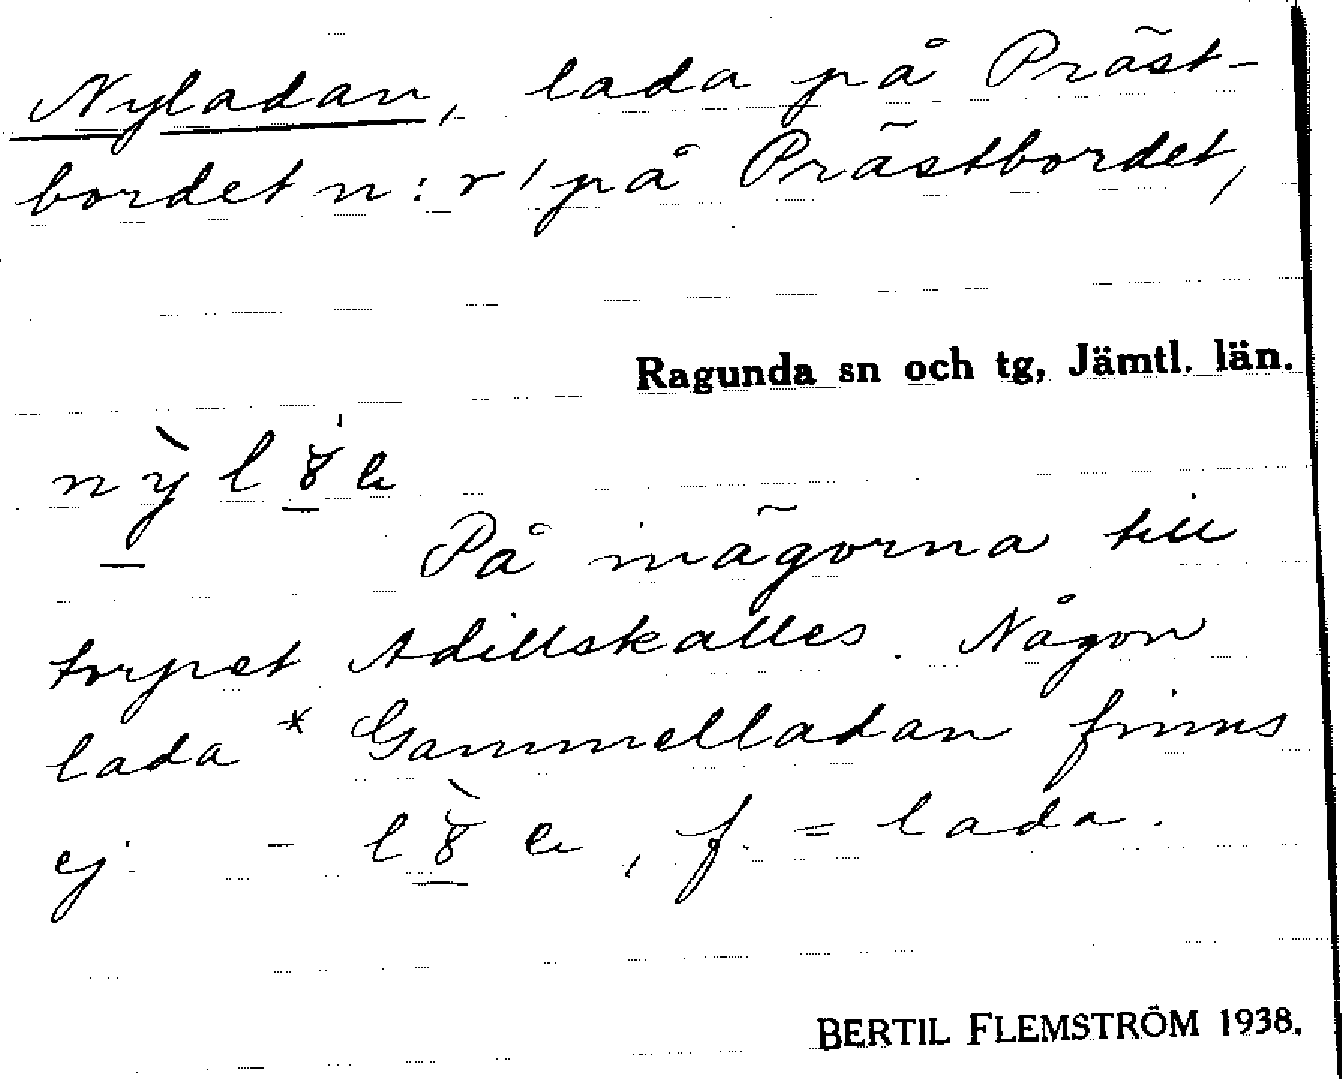 Nyladan, lada på Präst-
bordet n:r 1 på Prästbordet,
Ragunda sn och tg, Jämtl. län.
På mägorna till
torpet Adillskalles. Någon
lada * Gammelladan finns
ej. - , f. = lada.
BERTIL FLEMSTRÖM 1938.